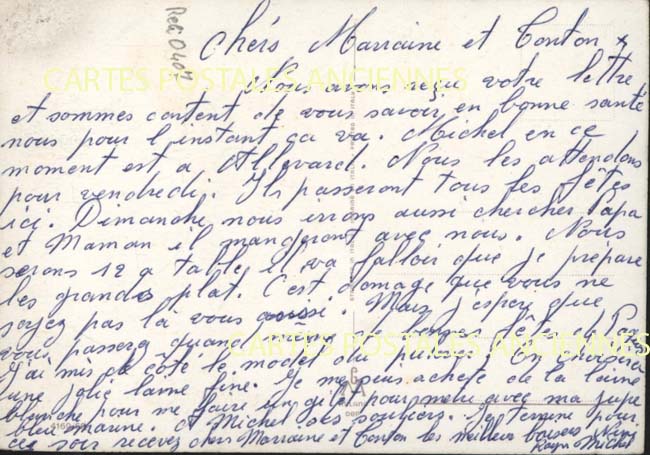 Reli 0407
Chérs Marraine et Tonton
Nous avons reçue votre lettre
et sommes content de vous savoir en bonne santé
nous pour l'instant ça va. Michel en ce
moment est a Allevard. Nous les attendons
pour vendredi. Ils passeront tous les fêtes
ici. Dimanche nous irrons aussi chercher Papa
et Maman il mangeront avec nous. Nous
serons 12 a table Il va falloir que je prépare
les grands plat. C'est domage que vous ne
soyez pas là vous aussi. Mais j'espère que
vous passerez quand même
J'ai mis de côté le model du On choisira
une jolie laine fine. Je me suis acheté de la laine
blanche pour me faire un gilet pour mettre avec ma jupe
bleu marine. et Michel des souliers. Je termine pour
ce soir recevez chers Marraine et Tonton les meilleurs baisers
Michel
CARTES POSTALES ANCIENNES
CARTES POSTALES ANCIENNES